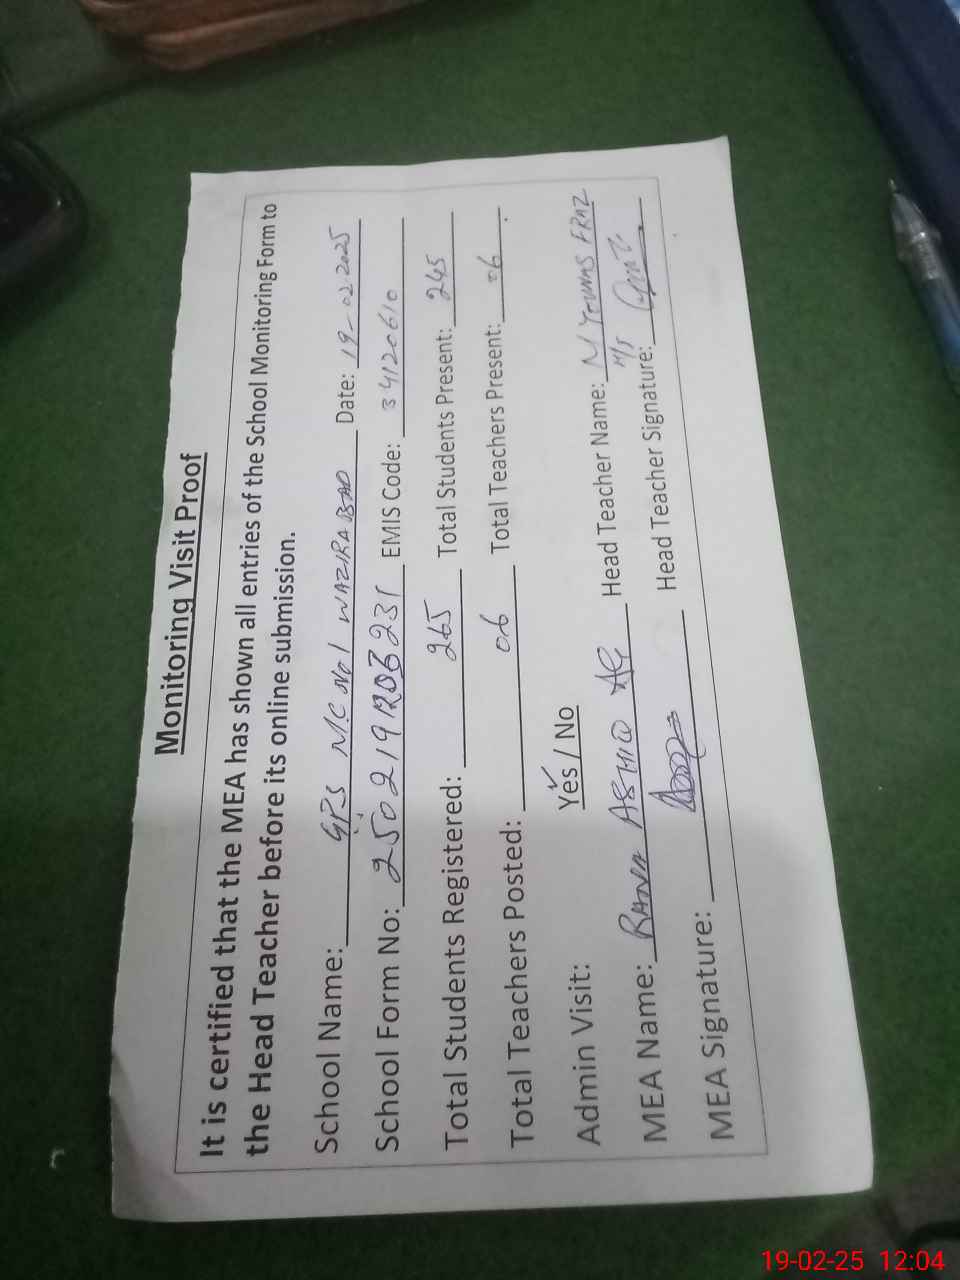 Monitoring Visit Proof
It is certified that the MEA has shown all entries of the School Monitoring Form to
the Head Teacher before its online submission.
School Name: GPS M.C No 1 WAZIRABAD Date: 19-02-2025
School Form No: 250219120B231 EMIS Code: 34120610
Total Students Registered: 265 Total Students Present: 245
Total Teachers Posted: 06 Total Teachers Present: 06
Admin Visit: Yes / No
MEA Name: RANA ASHIQ Head Teacher Name: M YOUNAS
MEA Signature: Head Teacher Signature:
19-02-25 12:04